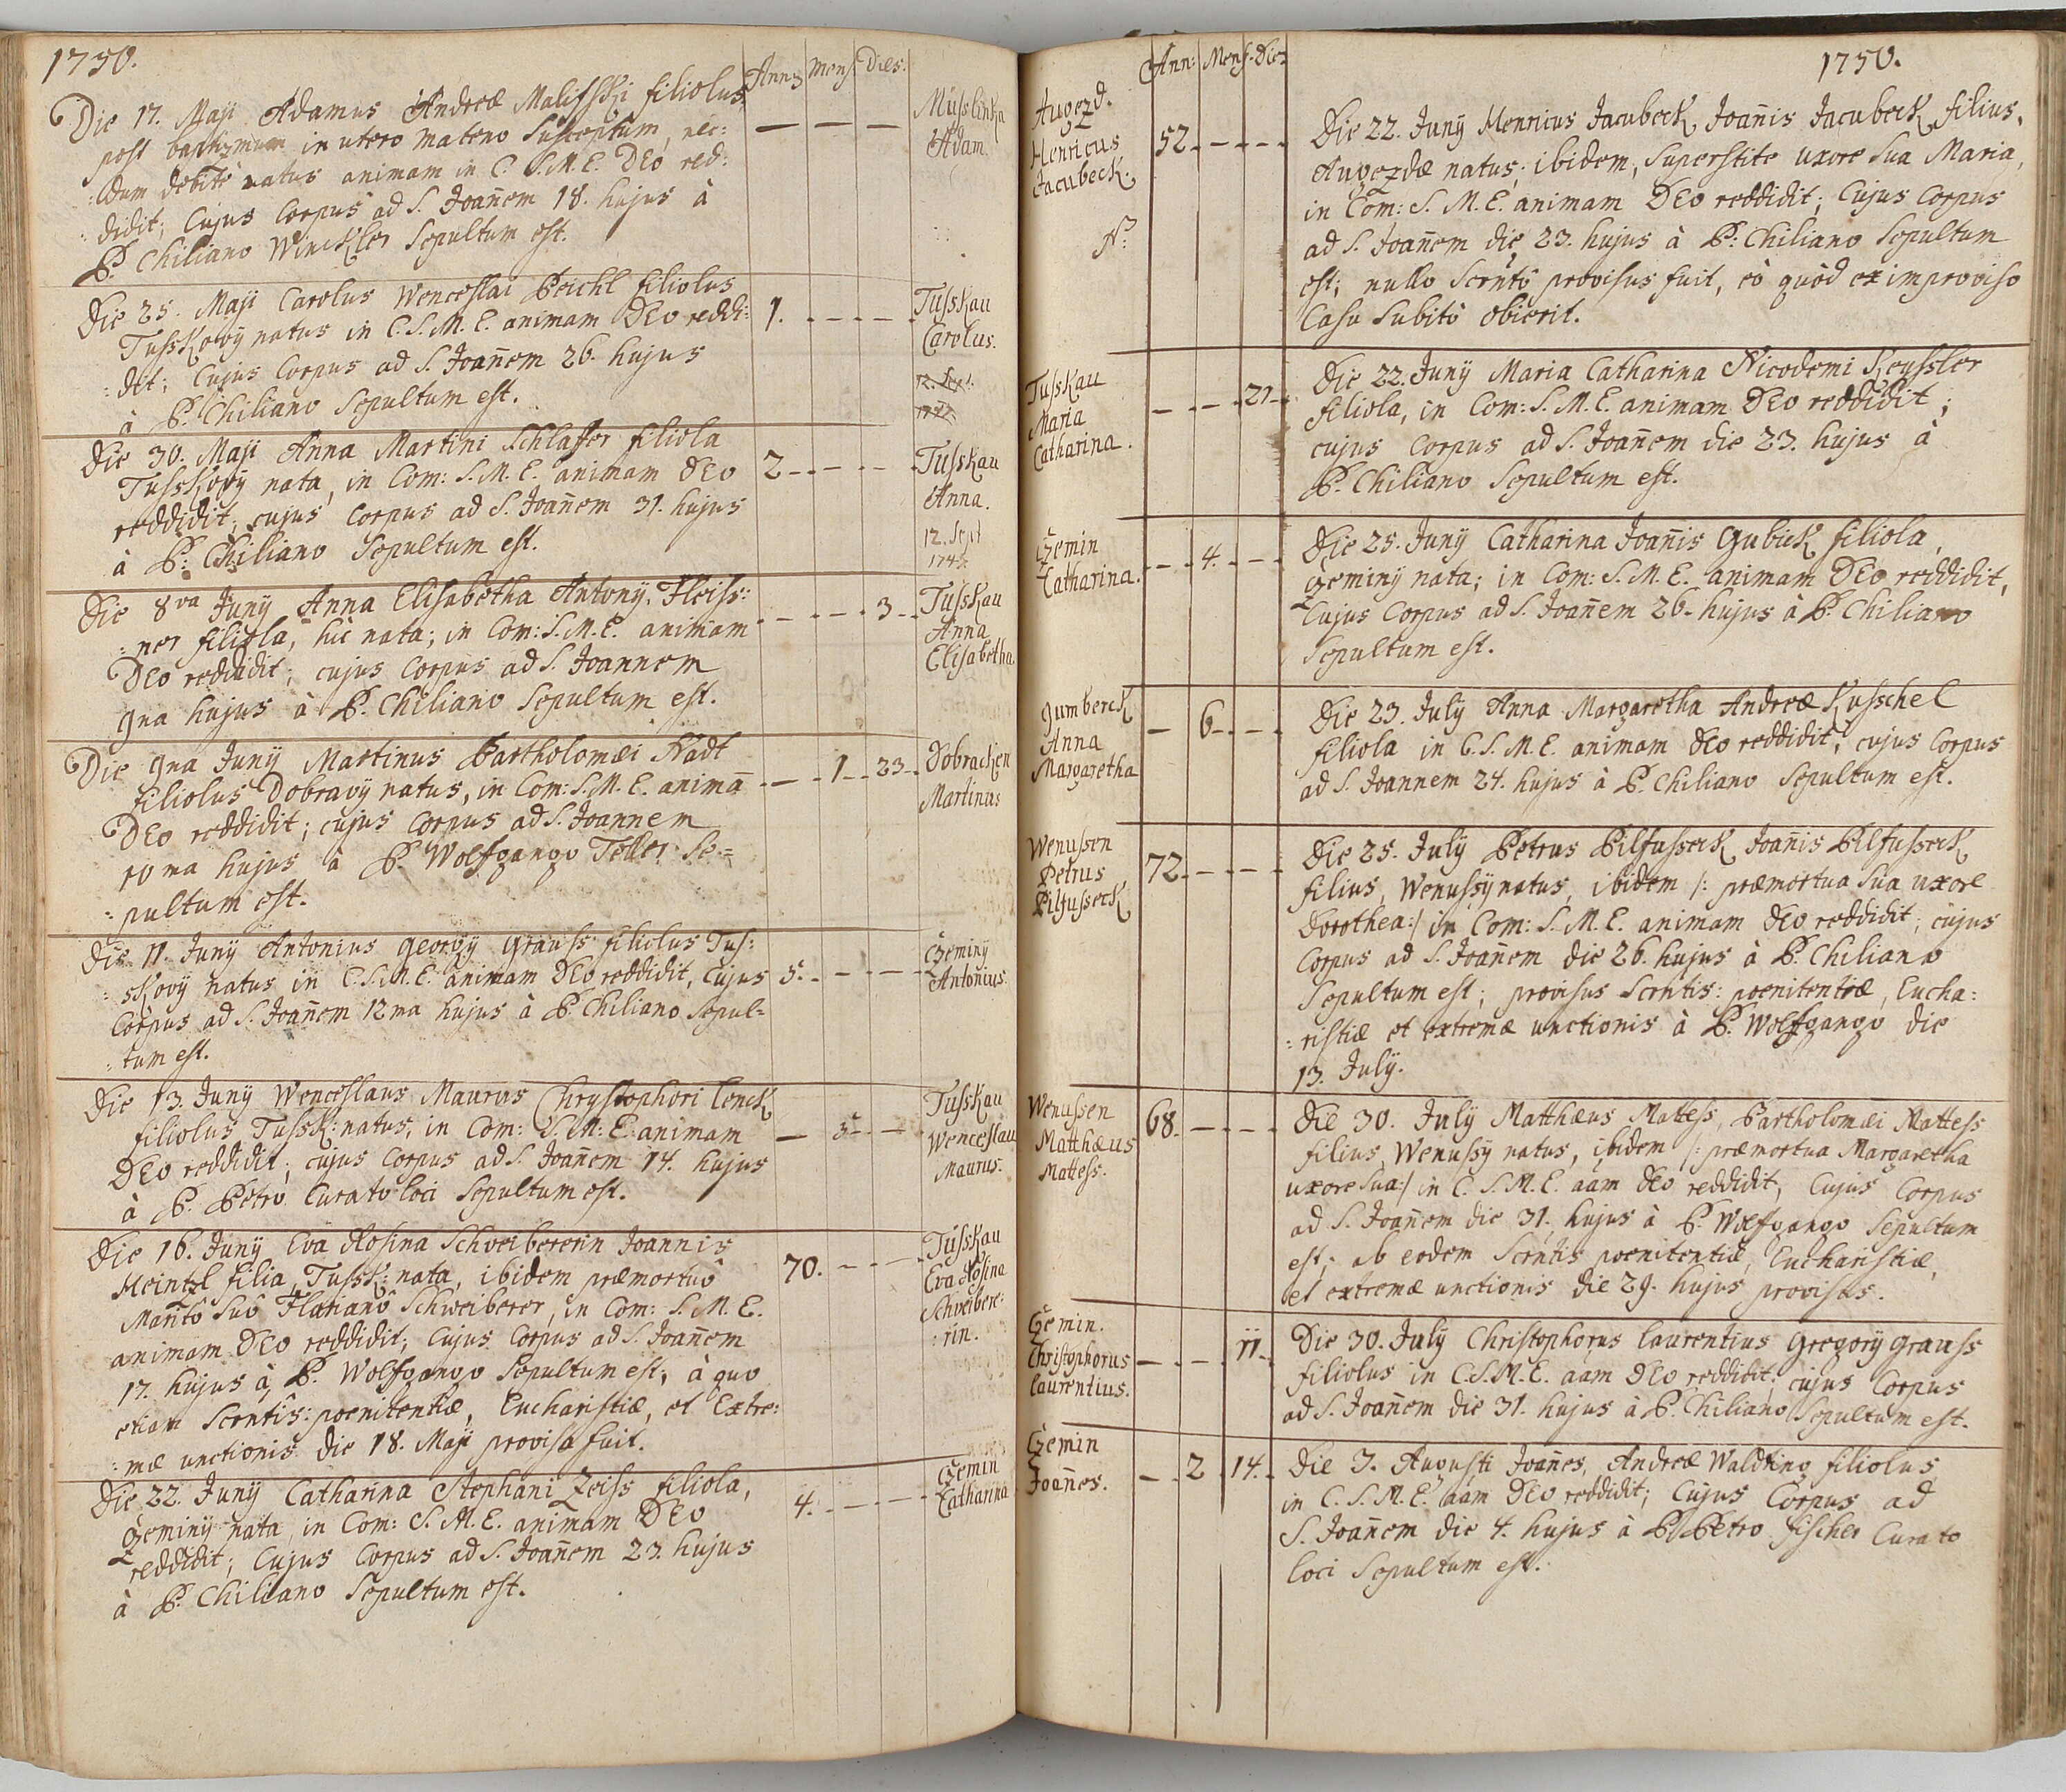 1750.
Annj Mens. Dies.
Die 17. Maji Adamus Andreæ Malifski filiolus
post baptizmum in utero materno susceptum, nec:
:dum debitè natus animam in C. S.M.E. DEo red:
:didit; Cujus Corpus ad S. Joan̄em 18. hujus à
P. Chiliano Winckler Sepultum est.
— — —
Musslinka
Adam
Die 25. Maji Carolus Wenceslai Peichl filiolus
Tusskovÿ natus in C.S.M.E. animam DEo reddi:
:dit; Cujus Corpus ad S. Joan̄em 26. hujus
à P. Chiliano Sepultum est.
1. - - - -
Tusskau
Carolus.
12. Sept.
Die 30. Maji Anna Martini Schlaffer filiola
Tusskovÿ nata, in Com: S.M.E. animam DEo
reddidit; cujus Corpus ad S. Joan̄em 31. hujus
à P: Chiliano Sepultum est.
2 - - - -
Tusskau
Anna.
12. Sept
Die 8va Junÿ Anna Elisabetha Antonÿ Fleiss:
:ner filiola, hic nata; in Com: S.M.E. animam
DEo reddidit; cujus Corpus ad S. Joannem
9na hujus à P. Chiliano Sepultum est.
- - - - 3 -
Tusskau
Anna
Elisabetha.
Die 9na Junÿ Martinus Bartholomæi Nadt
filiolus Dobravÿ natus, in Com: S.M.E. animā
DEo reddidit; cujus Corpus ad S. Joannem
10ma hujus à P. Wolfgango Teller Se-
:pultum est.
- - 1 - 23 -
Dobracken
Martinus
Die 11. Junÿ Antonius Georgÿ Grauss filiolus Tus:
:skovÿ natus in C.S.M.E. animam DEo reddidit, Cujus
Corpus ad S. Joan̄em 12ma hujus à P. Chiliano Sepul-
:tum est.
5. - - - -
Czeminÿ
Antonius.
Die 13. Junÿ Wenceslaus Maurus Chrystophori Lenck
filiolus Tussk: natus, in Com: S.M.E. animam
DEo reddidit; cujus Corpus ad S. Joan̄em 14. hujus
à P. Petro Curato loci Sepultum est.
— 5 - -
Tusskau
Wenceslau
Maurus.
Die 16. Junÿ Eva Rosina Schweibererin Joannis
Heintzl filia, Tussk: nata, ibidem præmortuô
Maritô suô Florianô Schweiberer, in Com: S.M.E.
animam DEo reddidit; Cujus Corpus ad S. Joan̄em
17. hujus à P. Wolfgango Sepultum est, à quo
etiam Scrntis: poenitentiæ, Eucharistiæ, et Extre:
:mæ unctionis die 18. Maji provisa fuit.
70. - - - -
Tusskau
Eva Rosina
Schweibere:
:rin.
Die 22. Junÿ Catharina Stephani Zeiss filiola,
Czeminÿ nata, in Com: S.M.E. animam DEo
reddidit; Cujus Corpus ad S. Joan̄em 23. hujus
à P. Chiliano Sepultum est.
4. - - - -
Czemin
Catharina
Ann: Mens. Dies
1750.
Augezd.
Henricus
Jacubeck.
N:
52. - - - -
Die 22. Junÿ Henricus Jacubeck, Joan̄is Jacubeck filius,
Augezdæ natus; ibidem, Superstite uxore sua Maria,
in Com: S. M.E. animam DEo reddidit; Cujus Corpus
ad S. Joan̄em die 23. hujus à P: Chiliano Sepultum
est; nullo Scrntô provisus fuit, eò quòd ex improviso
Casu Subitò obierit.
Tusskau
Maria
Catharina.
- - - 21 -
Die 22. Junÿ Maria Catharina Nicodemi Keyssler
filiola, in Com: S.M.E. animam DEo reddidit;
cujus Corpus ad S. Joan̄em die 23. hujus à
P. Chiliano Sepultum est.
Czemin
Catharina.
- - 4. - -
Die 25. Junÿ Catharina Joan̄is Gubick filiola,
Czeminÿ nata; in Com: S.M.E. animam DEo reddidit,
Cujus Corpus ad S. Joan̄em 26. hujus à P. Chiliano
Sepultum est.
Gumberck
Anna
Margaretha
— 6 - - -
Die 23. Julÿ Anna Margaretha Andreæ Kusschel
filiola in C.S.M.E. animam DEo reddidit; cujus Corpus
ad S. Joannem 24. hujus à P. Chiliano Sepultum est.
Wenussen
Petrus
Pilfusseck
72. - - - -
Die 25. Julÿ Petrus Pilfusseck, Joan̄is Pilfusseck
filius, Wenussÿ natus, ibidem /: præmortua sua uxore
Dorothea:/ in Com: S.M.E. animam DEo reddidit; cujus
Corpus ad S. Joan̄em die 26. hujus à P. Chiliano
Sepultum est; provisus Scrntis: poenitentiæ, Eucha:
:ristiæ et extremæ unctionis à P. Wolfgango die
13. Julÿ.
Wenussen
Matthæus
Mattess.
68. - - - -
Die 30. Julÿ Matthæus Mattess, Bartholomæi Mattess
filius, Wenussÿ natus, ibidem /: præmortua Margaretha
uxore sua:/ in C. S.M.E. aām DEo reddidit, Cujus Corpus
ad S. Joan̄em die 31. hujus à P. Wolfgango Sepultum
est; ab eodem Scrntis poenitentiæ, Eucharistiæ,
et extremæ unctionis die 29. hujus provisus.
Czemin.
Christophorus
Laurentius.
— - - 11 -
Die 30. Julÿ Christophorus Laurentius Gregorÿ Grauss
filiolus in C.S.M.E. aām DEo reddidit; cujus Corpus
ad S. Joan̄em die 31. hujus à P. Chiliano Sepultum est.
Czemin
Joan̄es.
— 2 14.
Die 3. Augusti Joan̄es, Andreæ Waldting filiolus
in C. S.M.E. aam DEo reddidit; Cujus Corpus ad
S. Joan̄em die 4. hujus à P. Petro Fischer Curato
loci Sepultum est.